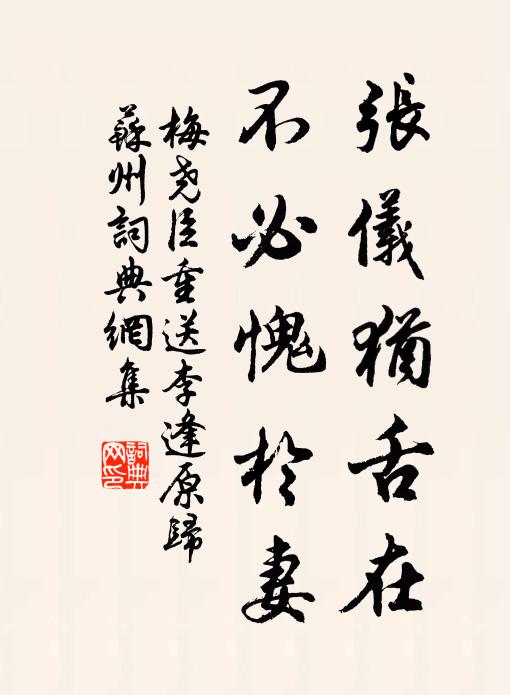 張儀猶舌在
不必愧於妻
梅堯臣重送李逢原歸
蘇州詞典網集
詞典网印